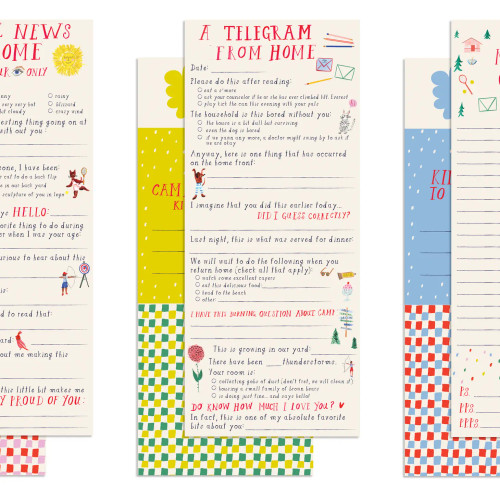 NEWS
OME
EYE ONLY
rainy
very very hot
bit cloudy
rainy
blizzard
crazy wind
esting thing going on at
ith out you:
one, I have been:
to do a back flip
in our back yard
sculpture of you in lego
ys HELLO:
orite thing to do during
er when I was your age:
urious to hear about this
d to read that:
ard:
ou me making this
this little bit makes me
Y PROUD OF YOU:
A TELEGRAM
FROM HOME
Date:
Please do this after reading:
eat a s'more
ask your counselor if he or she has ever climbed Mt. Everest
play kick the can this evening with your pals
The household is this bored without you:
the house is a bit dull but surviving
even the dog is bored
if we yawn any more, a doctor might swing by to ask if
you are okay
Anyway, here is one thing that has occurred
on the home front:
I imagine that you did this earlier today...
DID I GUESS CORRECTLY?
Last night, this is what was served for dinner:
We will wait to do the following when you
return home (check all that apply):
watch some excellent capers
eat this delicious food:
head to the beach
other:
I HAVE THIS BURNING QUESTION ABOUT CAMP
This is growing in our yard:
There have been thunderstorms.
Your room is:
collecting gobs of dust (don't fret, we will clean it)
housing a small family of brown bears
is doing just fine...and says hello!
DO KNOW HOW MUCH I LOVE YOU?
In fact, this is one of my absolute favorite
bits about you:
CAM
KI
KI
TO
PS
PPS
PPPS